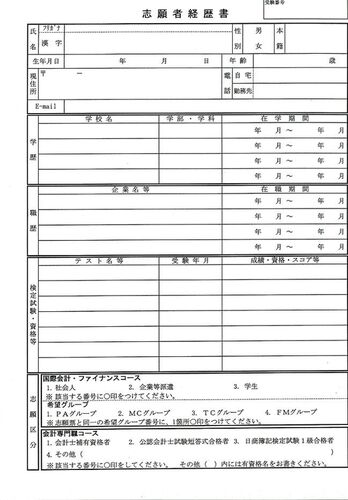 受験番号
志願者経歴書
氏名 フリガナ 漢字 性別 男 女 本籍
生年月日 年 月 日 年齢 歳
現住所 〒 － 電話 自宅 勤務先
E-mail
学歴 学校名 学部・学科 在学期間
年 月～ 年 月
年 月～ 年 月
年 月～ 年 月
年 月～ 年 月
職歴 企業名等 在職期間
年 月～ 年 月
年 月～ 年 月
年 月～ 年 月
年 月～ 年 月
検定試験・資格等 テスト名等 受験年月 成績・資格・スコア等
志願区分
国際会計・ファイナンスコース
1. 社会人 2. 企業等派遣 3. 学生
※該当する番号に○印をつけてください。
希望グループ
1. PAグループ 2. MCグループ 3. TCグループ 4. FMグループ
※志願票と同一の希望グループ番号に、1箇所○印をつけてください。
会計専門職コース
1. 会計士補有資格者 2. 公認会計士試験短答式合格者 3. 日商簿記検定試験1級合格者
4. その他（ ）
※該当する番号に○印をしてください。 その他（ ）内には有資格名をお書きください。